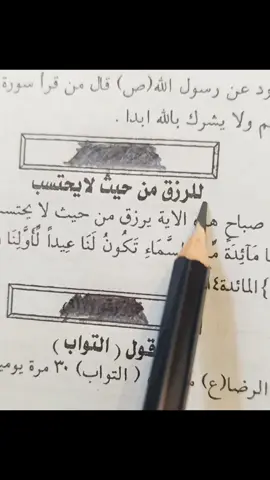 ود عن رسول الله(ص) قال من قرأ سورة
م ولا يشرك بالله ابدا .
للرزق من حيث لايحتسب
صباح الاية يرزق من حيث لا يحتسب
مَآئِدَةً السَّمَاءِ تَكُونُ لَنَا عِيداً لِّأَوَّلِنَا
} المائدة
قول ( التواب )
الرضا(ع) ( التواب) ٣٠ مرة